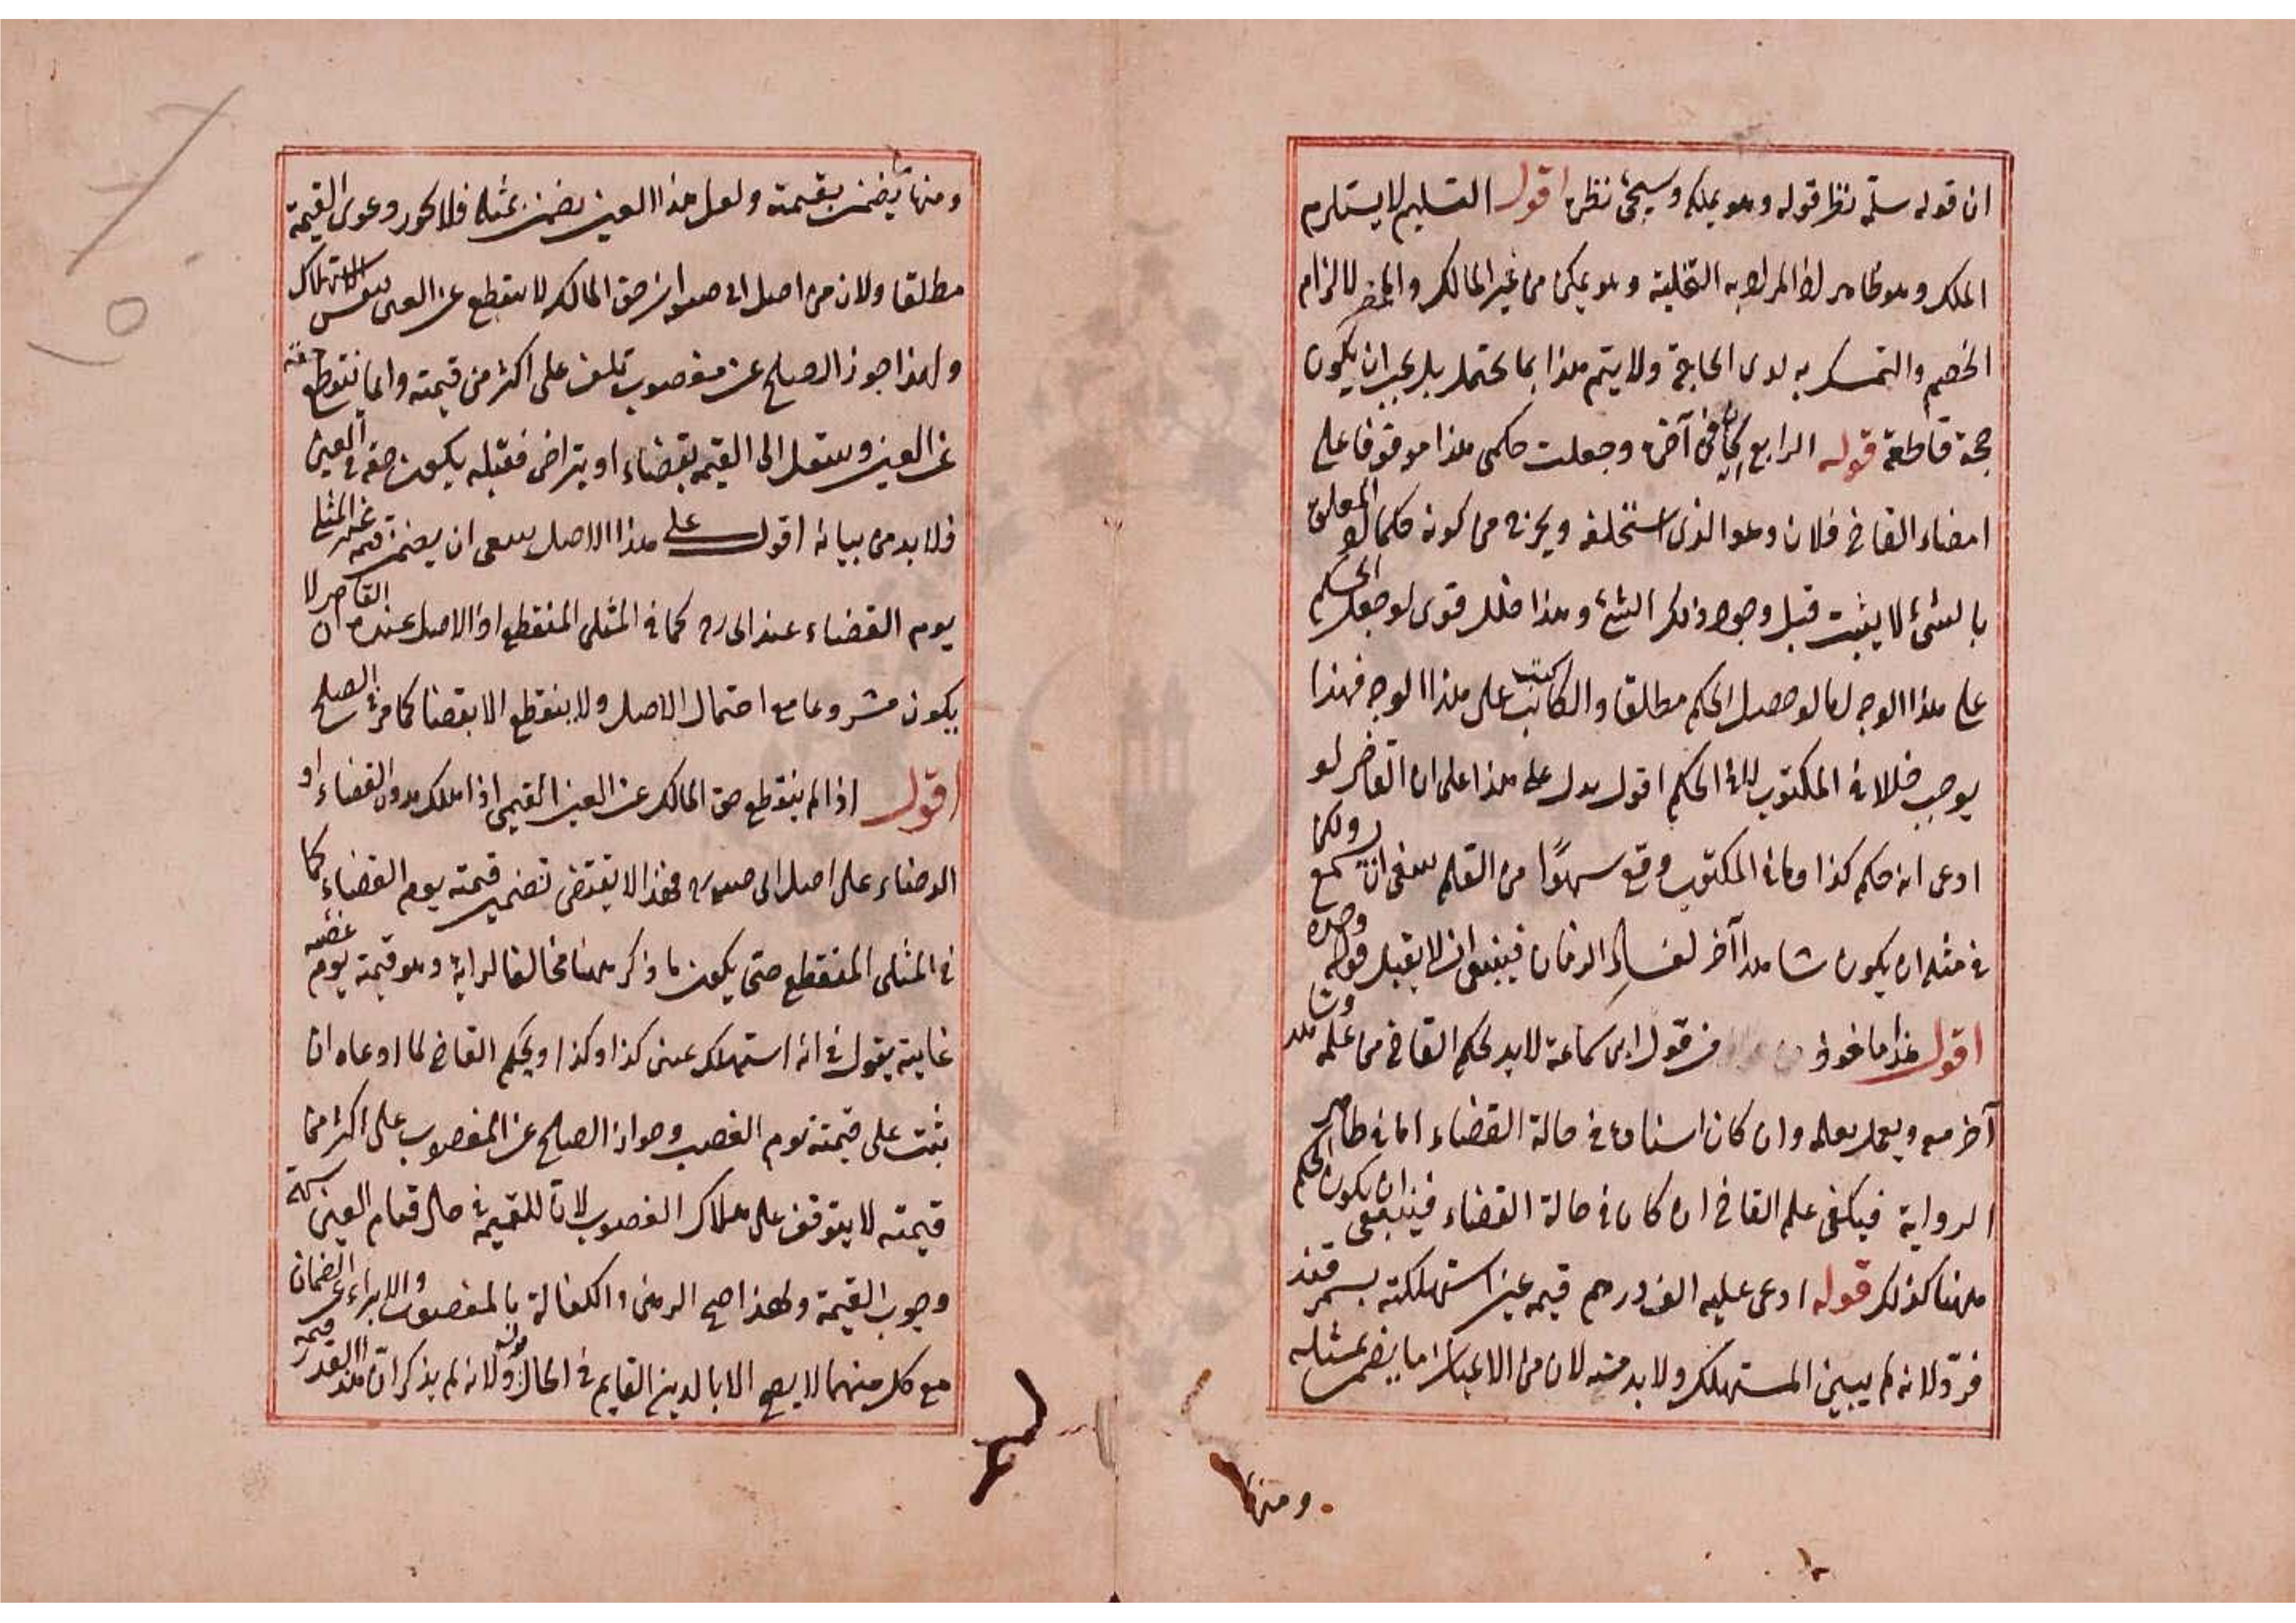 ان قوله سلمه نظر قوله وهو يملكه وسيجئ نظره اقول التسليم لا يستلزم
الملك وهو ظاهر لان المراد به التخلية وهو يمكن من غير المالك والمحضر لالزام
الخصم والتمسك به لدى الحاجة ولا يتم هذا بما يحتمل بل يجب ان يكون
حجة قاطعة قوله الرابع كتب في آخره وجعلت حكمي هذا موقوفا على
امضاء القاضي فلان وهو الذي استخلفه ويخرج من كونه حكما اذ المعلق
بالشئ لا يثبت قبل وجود ذلك الشئ وهذا خلل قوي لو جعل الحكم
على هذا الوجه اما لو حصل الحكم مطلقا والكاتب كتب على هذا الوجه فهذا
يوجب خللا في المكتوب لا في الحكم اقول يدل هذا على ان القاضي لو
ادعى انه حكم كذا وما في المكتوب وقع سهوًا من القلم ينبغي ان يسمع ولكن
في مثله ان يكون شاهدا آخر لفساد الزمان فينبغي ان لا يقبل قوله وحده
اقول هذا مأخوذ من قول ابن سماعة لا بد لحكم القاضي من علمه وشاهد
آخر معه ويعمل بعلمه وان كان استفاده في حالة القضاء اما في ظاهر
الرواية فيكفي علم القاضي ان كان في حالة القضاء فينبغي ان يكون الحكم
ههنا كذلك قوله ادعى عليه الف درهم قيمة عين استهلكته بسمرقند
فرد لانه لم يبين المستهلك ولا بد منه لان من الاعيان ما يضمن بمثله
ومنها
ومنها ما يضمن بقيمته ولعل هذا العين يضمن بمثله فلا يجوز دعوى القيمة
مطلقا ولان من اصل ابي حنيفة ان حق المالك لا ينقطع عن العين بنفس الاستهلاك
ولهذا جوز الصلح عن مغصوب تلف على اكثر من قيمته وانما ينقطع حقه
عن العين وينتقل الى القيمة بقضاء او بتراض فقبله يكون حقه في العين
فلا بد من بيانه اقول على هذا الاصل ينبغي ان يضمن قيمة غير المثلي
يوم القضاء عند ابي ح كما في المثلي المنقطع اذ الاصل عنده ان القاصر لا
يكون مشروعا مع احتمال الاصل ولا ينقطع الا بقضاء كما مر في الصلح
اقول اذا لم ينقطع حق المالك عن العين القيمي اذا هلك بدون القضاء او
الرضاء على اصل ابي حنيفة فهذا لا يقتضي تضمين قيمته يوم القضاء كما
في المثلي المنقطع حتى يكون ما ذكر ههنا مخالفا لرأيه وهو قيمة يوم غصبه
غايته يقول في انه استهلك عيني كذا وكذا ويحكم القاضي لما ادعاه ان
يثبت على قيمته يوم الغصب وجواز الصلح عن المغصوب على اكثر من
قيمته لا يتوقف على هلاك المغصوب لان للقيمة في حال قيام العين
وجوب القيمة ولهذا صح الرهن والكفالة بالمغصوب والابراء عن الضمان
مع كل منهما لا يصح الا بالدين القايم في الحال ولانه لم يذكر ان هذا القدر قيمة